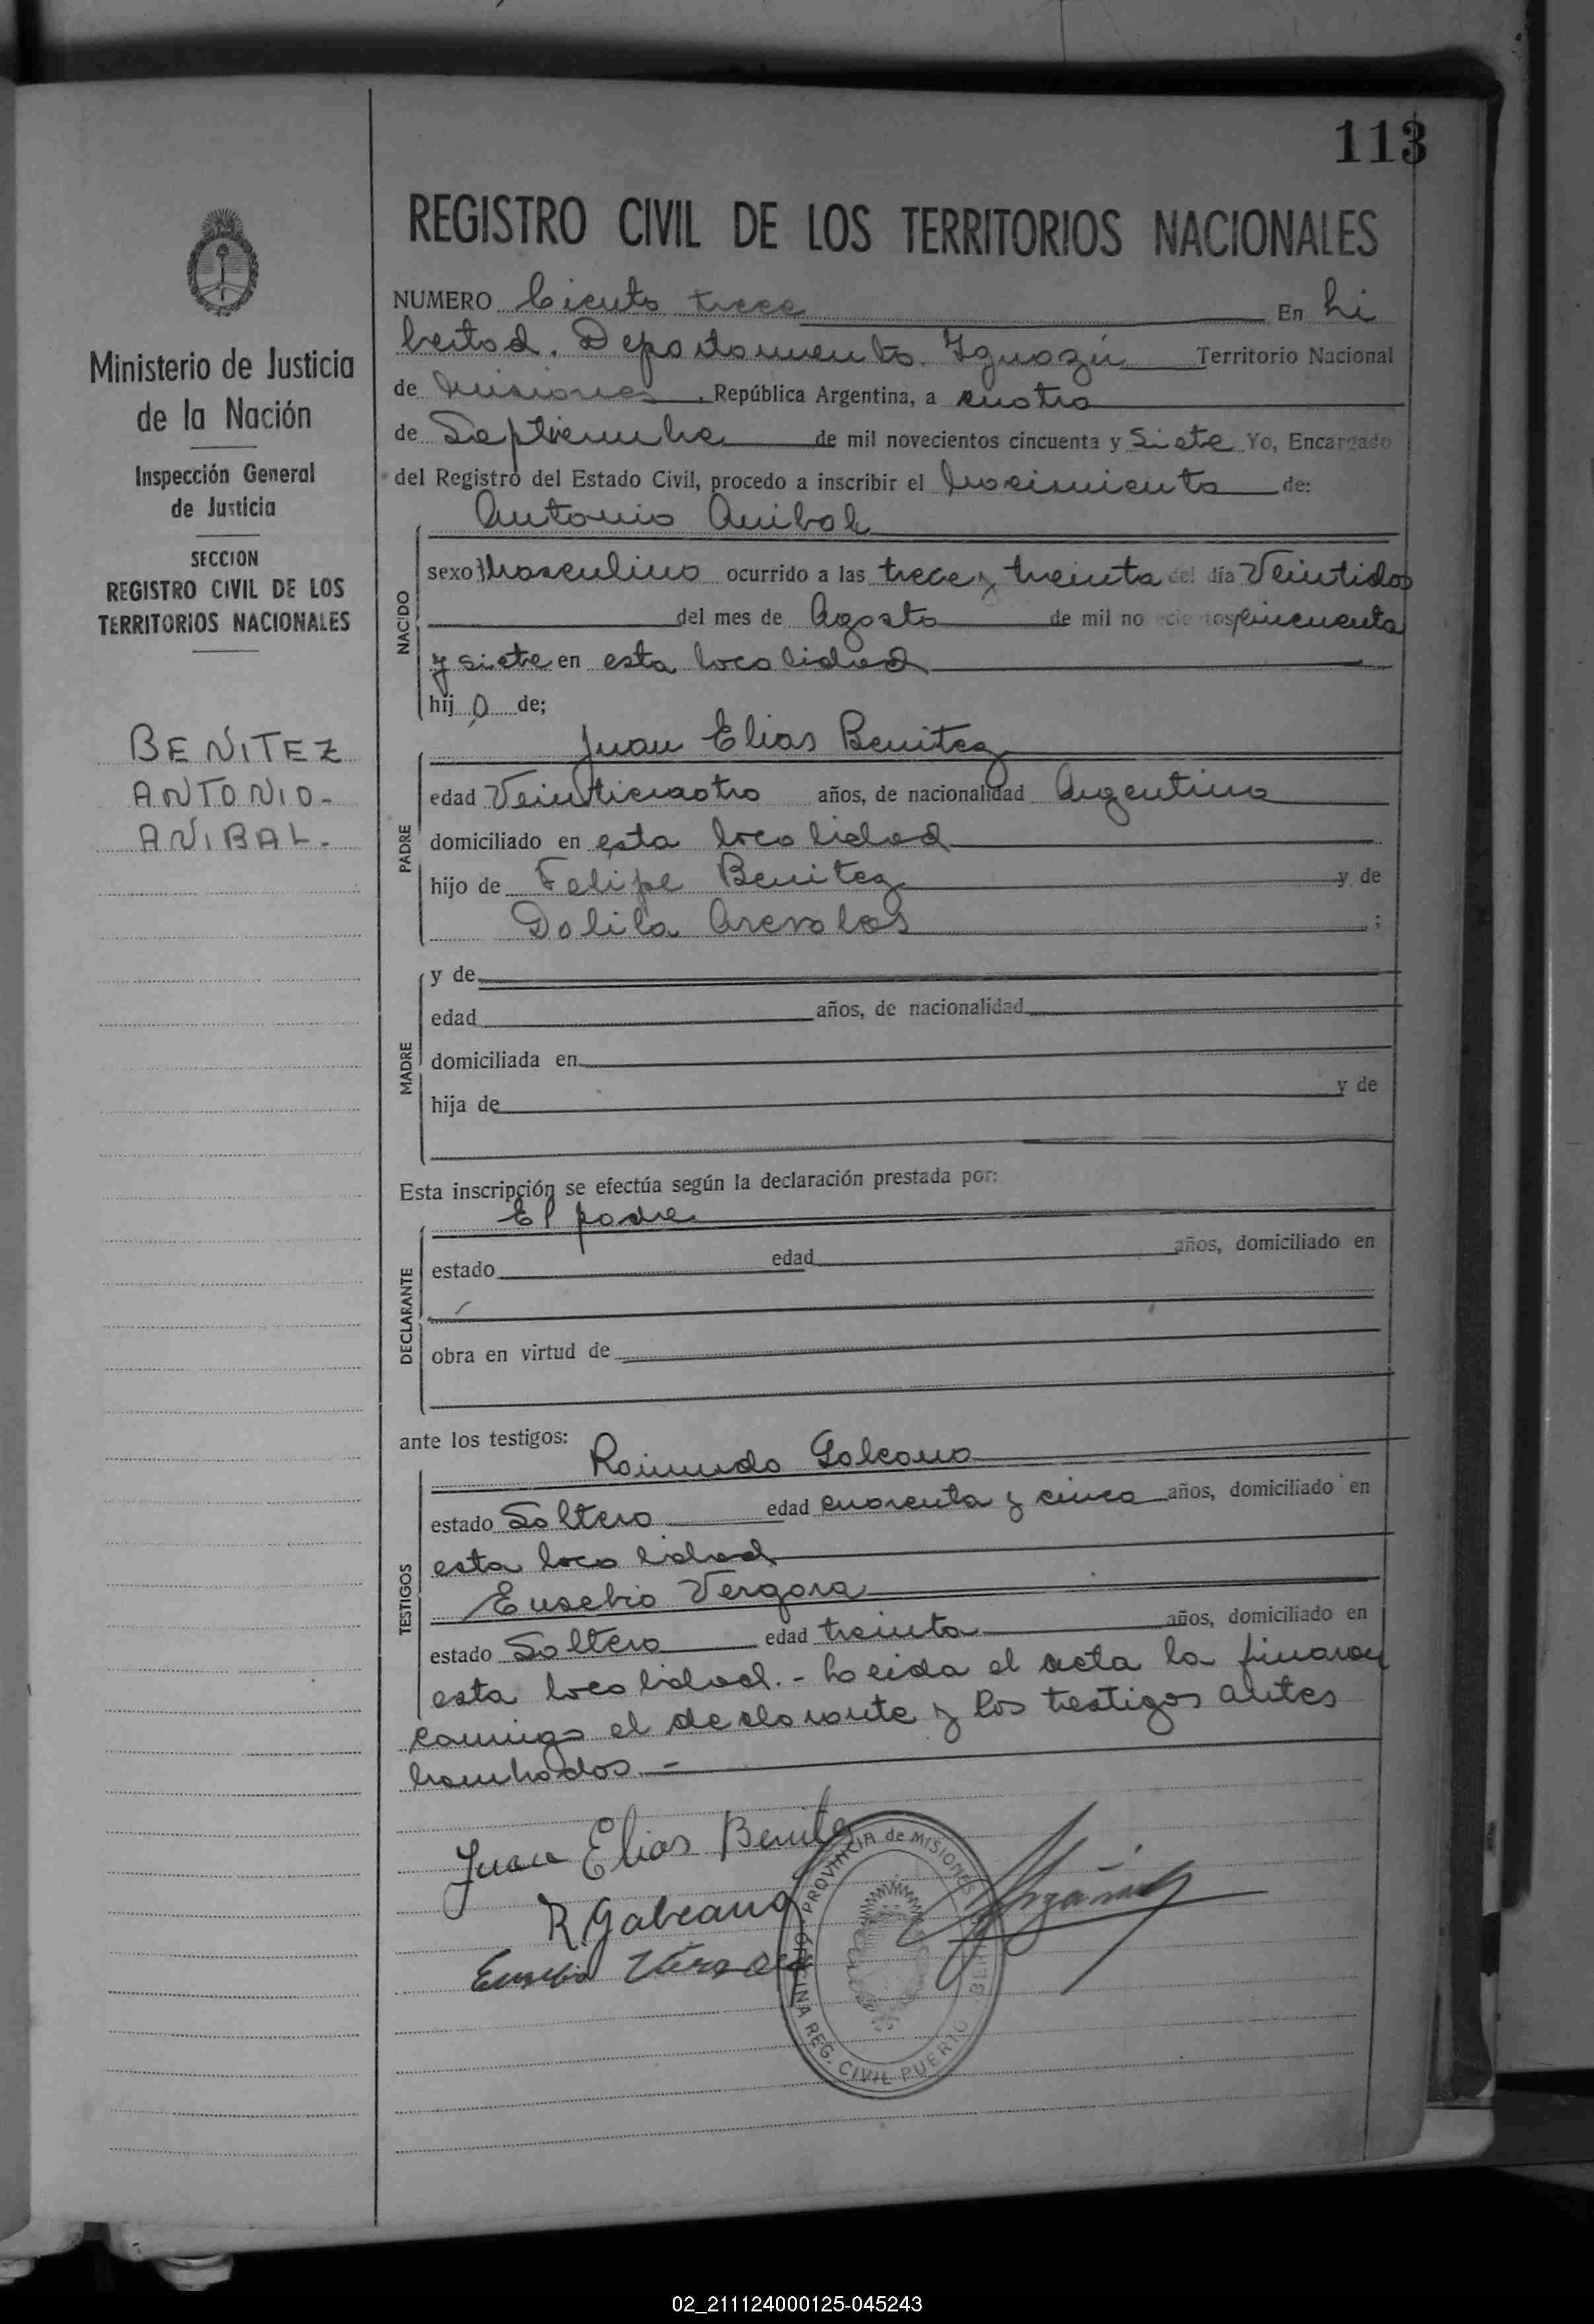 113
REGISTRO CIVIL DE LOS TERRITORIOS NACIONALES
Ministerio de Justicia
de la Nación
Inspección General
de Justicia
SECCION
REGISTRO CIVIL DE LOS
TERRITORIOS NACIONALES
BENITEZ
ANTONIO.-
ANIBAL.-
NUMERO Ciento trece En Li
bertad. Departamento Iguazú Territorio Nacional
de Misiones, República Argentina, a cuatro
de Septiembre de mil novecientos cincuenta y Siete Yo, Encargado
del Registro del Estado Civil, procedo a inscribir el Nacimiento de:
NACIDO
Antonio Anibal
sexo Masculino ocurrido a las trece y treinta del día Veintidos
del mes de Agosto de mil novecientos cincuenta
y siete en esta localidad
hij o de;
PADRE
Juan Elias Benitez
edad Veinticuatro años, de nacionalidad Argentina
domiciliado en esta localidad
hijo de Felipe Benitez y de
Dalila Arevalos ;
MADRE
y de
edad años, de nacionalidad
domiciliada en
hija de y de
Esta inscripción se efectúa según la declaración prestada por:
DECLARANTE
El padre
estado edad años, domiciliado en
obra en virtud de
ante los testigos:
TESTIGOS
Raimundo Galeano
estado Soltero edad cuarenta y cinco años, domiciliado en
esta localidad
Eusebio Vergara
estado Soltero edad treinta años, domiciliado en
esta localidad.- Leida el acta la firaron
conmigo el declarante y los testigos antes
nombrados.-
Juan Elias Benitez
R. Galeano
Eusebio Vergara
PROVINCIA de MISIONES
OFICINA REG. CIVIL PUERTO
02_211124000125-045243